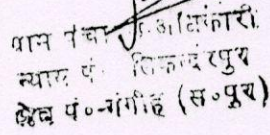 ग्राम पंचा अधिकारी
न्याय पं० सिकंदरपुर
क्षेत्र पं०-गंगीह (स०पुर)